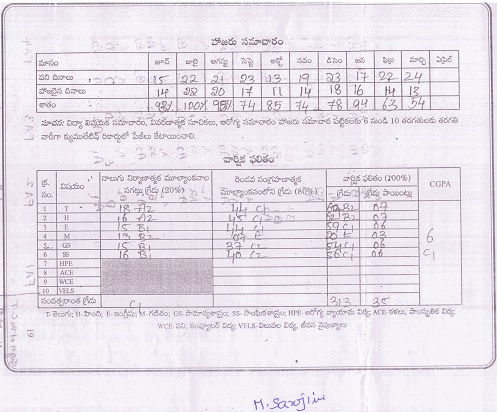 హాజరు సమాచారం
మాసం జూన్ జులై ఆగస్టు సెప్టె అక్టో నవం డిసెం జన ఫిబ్ర మార్చి ఏప్రిల్
పని దినాలు 15 22 21 23 13 19 23 17 22 24
హాజరైన దినాలు 14 22 20 17 11 14 18 16 14 13
శాతం 100% 74 85 74 78 94 63 54
సూచన: విద్యా విషయక సమాచారం, వివరణాత్మక సూచికలు, ఆరోగ్య సమాచారం హాజరు సమాచార పట్టికలకు 6 నుండి 10 తరగతులకు తరగతి
వారీగా క్యుములేటివ్ రికార్డులో పేజీలు కేటాయించాలి.
వార్షిక ఫలితం
క్ర. సం. విషయం నాలుగు నిర్మాణాత్మక మూల్యాంకనాల సగటు/గ్రేడు (20%) రెండవ సంగ్రహణాత్మక మూల్యాంకనంలోని గ్రేడు (80%) వార్షిక ఫలితం (100%) గ్రేడు గ్రేడ్ పాయింట్లు CGPA
1 T 18 A2 44 C1 B2 07
2 H 16 A2 45 C1 B2 07
3 E 15 B1 44 C1 59 C1 06
4 M 13 B2 E 03 6
5 GS 15 B1 37 C2 C1 06 C1
6 SS 16 B1 40 C2 56 C1 06
7 HPE
8 ACE
9 WCE
10 VELS
సంవత్సరాంత గ్రేడు C1 313 35
T-తెలుగు; H-హింది; E-ఇంగ్లీషు; M-గణితం; GS-సామాన్యశాస్త్రం; SS- సాంఘికశాస్త్రం; HPE- ఆరోగ్య వ్యాయామ విద్య; ACE-కళలు, సాంస్కృతిక విద్య;
WCE-పని, కంప్యూటర్ విద్య; VELS-విలువల విద్య, జీవన నైపుణ్యాలు
19
M. Sarojini